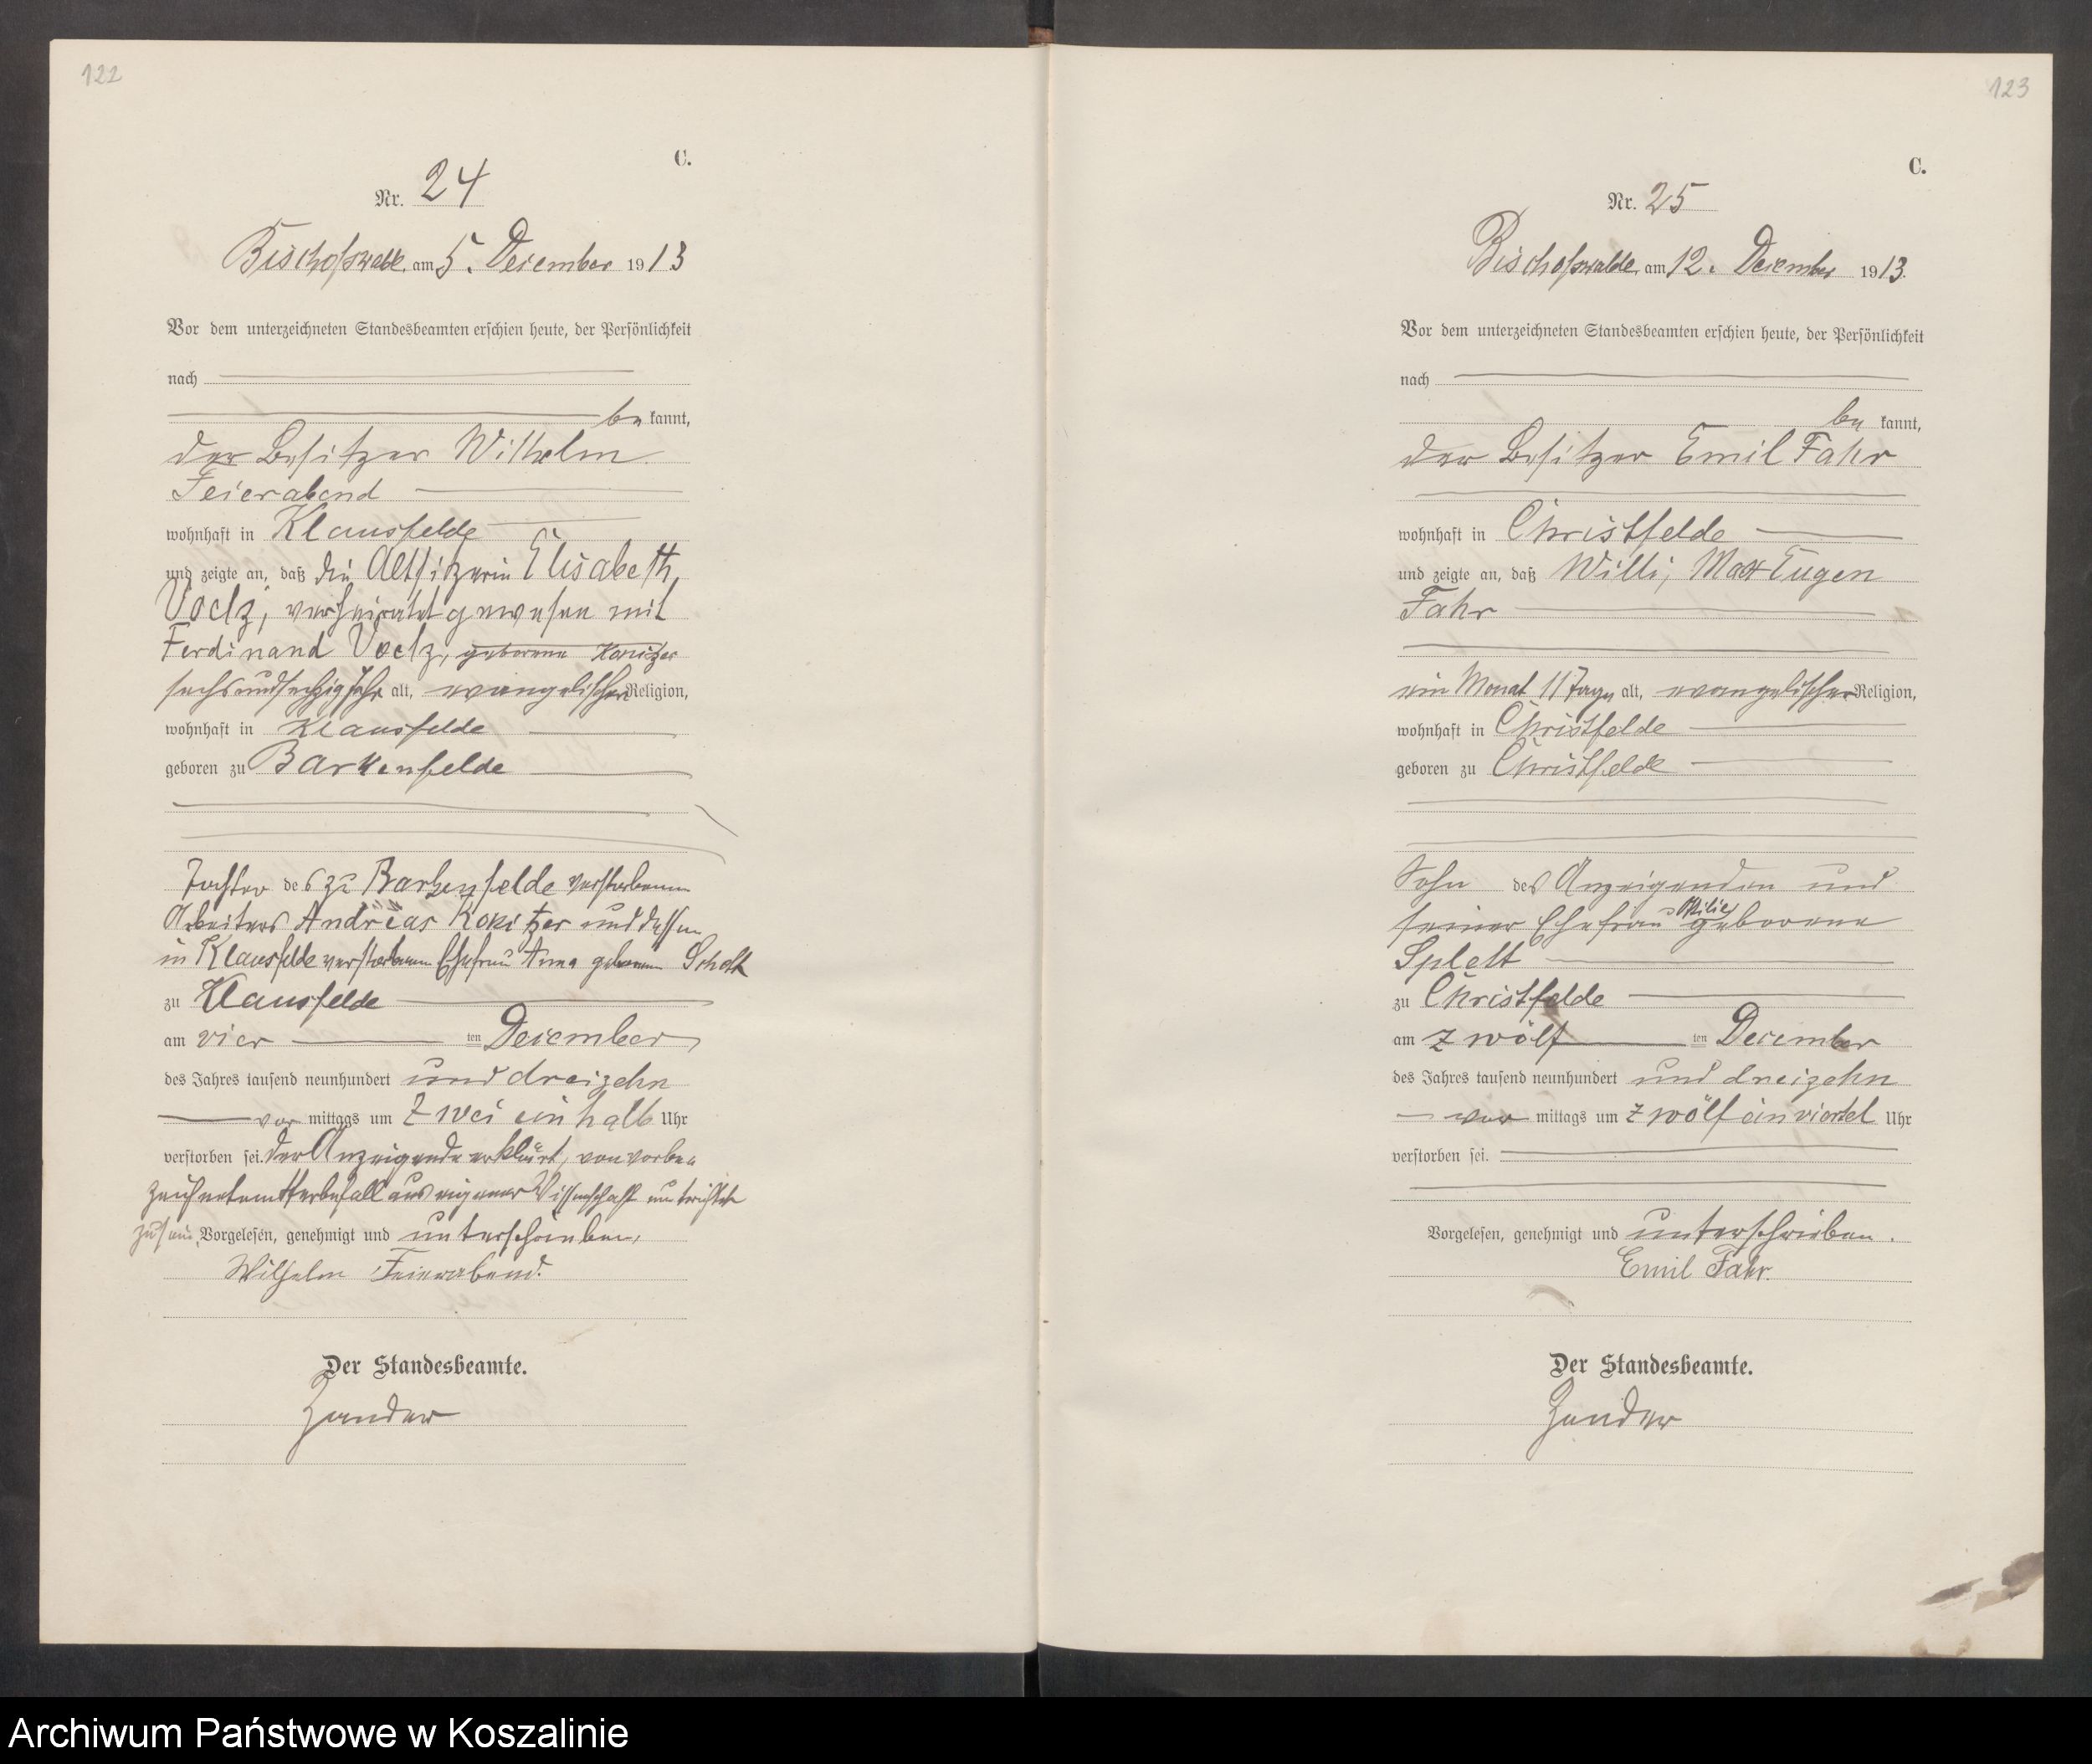 122
C.
Nr. 24
Bischofswalde, am 5. Dezember 1913
Vor dem unterzeichneten Standesbeamten erschien heute, der Persönlichkeit
nach
be kannt,
der Besitzer Wilhelm
Feierabend
wohnhaft in Klausfelde
und zeigte an, daß die Altsitzerin Elisabeth
Voelz, verheiratet gewesen mit
Ferdinand Voelz, geborene Konitzer
sechsundsechzig Jahr alt, evangelischer Religion,
wohnhaft in Klausfelde
geboren zu Barkenfelde
Tochter des zu Barkenfelde verstorbenen
Arbeiters Andreas Konitzer und dessen
in Klausfelde verstorbenen Ehefrau Anna geborenen
zu Klausfelde
am vier ten Dezember
des Jahres tausend neunhundert und dreizehn
vor mittags um zwei einhalb Uhr
verstorben sei. Der Anzeigende erklärt, von vorbe
zeichnetem Sterbefall aus eigener Wissenschaft unterrichtet
zu sein. Vorgelesen, genehmigt und unterschrieben.
Wilhelm Feierabend.
Der Standesbeamte.
Zander
123
C.
Nr. 25
Bischofswalde, am 12. Dezember 1913.
Vor dem unterzeichneten Standesbeamten erschien heute, der Persönlichkeit
nach
be kannt,
der Besitzer Emil Fahr
wohnhaft in Christfelde
und zeigte an, daß Willi, Max Eugen
Fahr
ein Monat 11 Tage alt, evangelischer Religion,
wohnhaft in Christfelde
geboren zu Christfelde
Sohn des Anzeigenden und
seiner Ehefrau Ottilie geborene
Splett
zu Christfelde
am zwölf ten Dezember
des Jahres tausend neunhundert und dreizehn
vor mittags um zwölf ein viertel Uhr
verstorben sei.
Vorgelesen, genehmigt und unterschrieben.
Emil Fahr.
Der Standesbeamte.
Zander
Archiwum Państwowe w Koszalinie